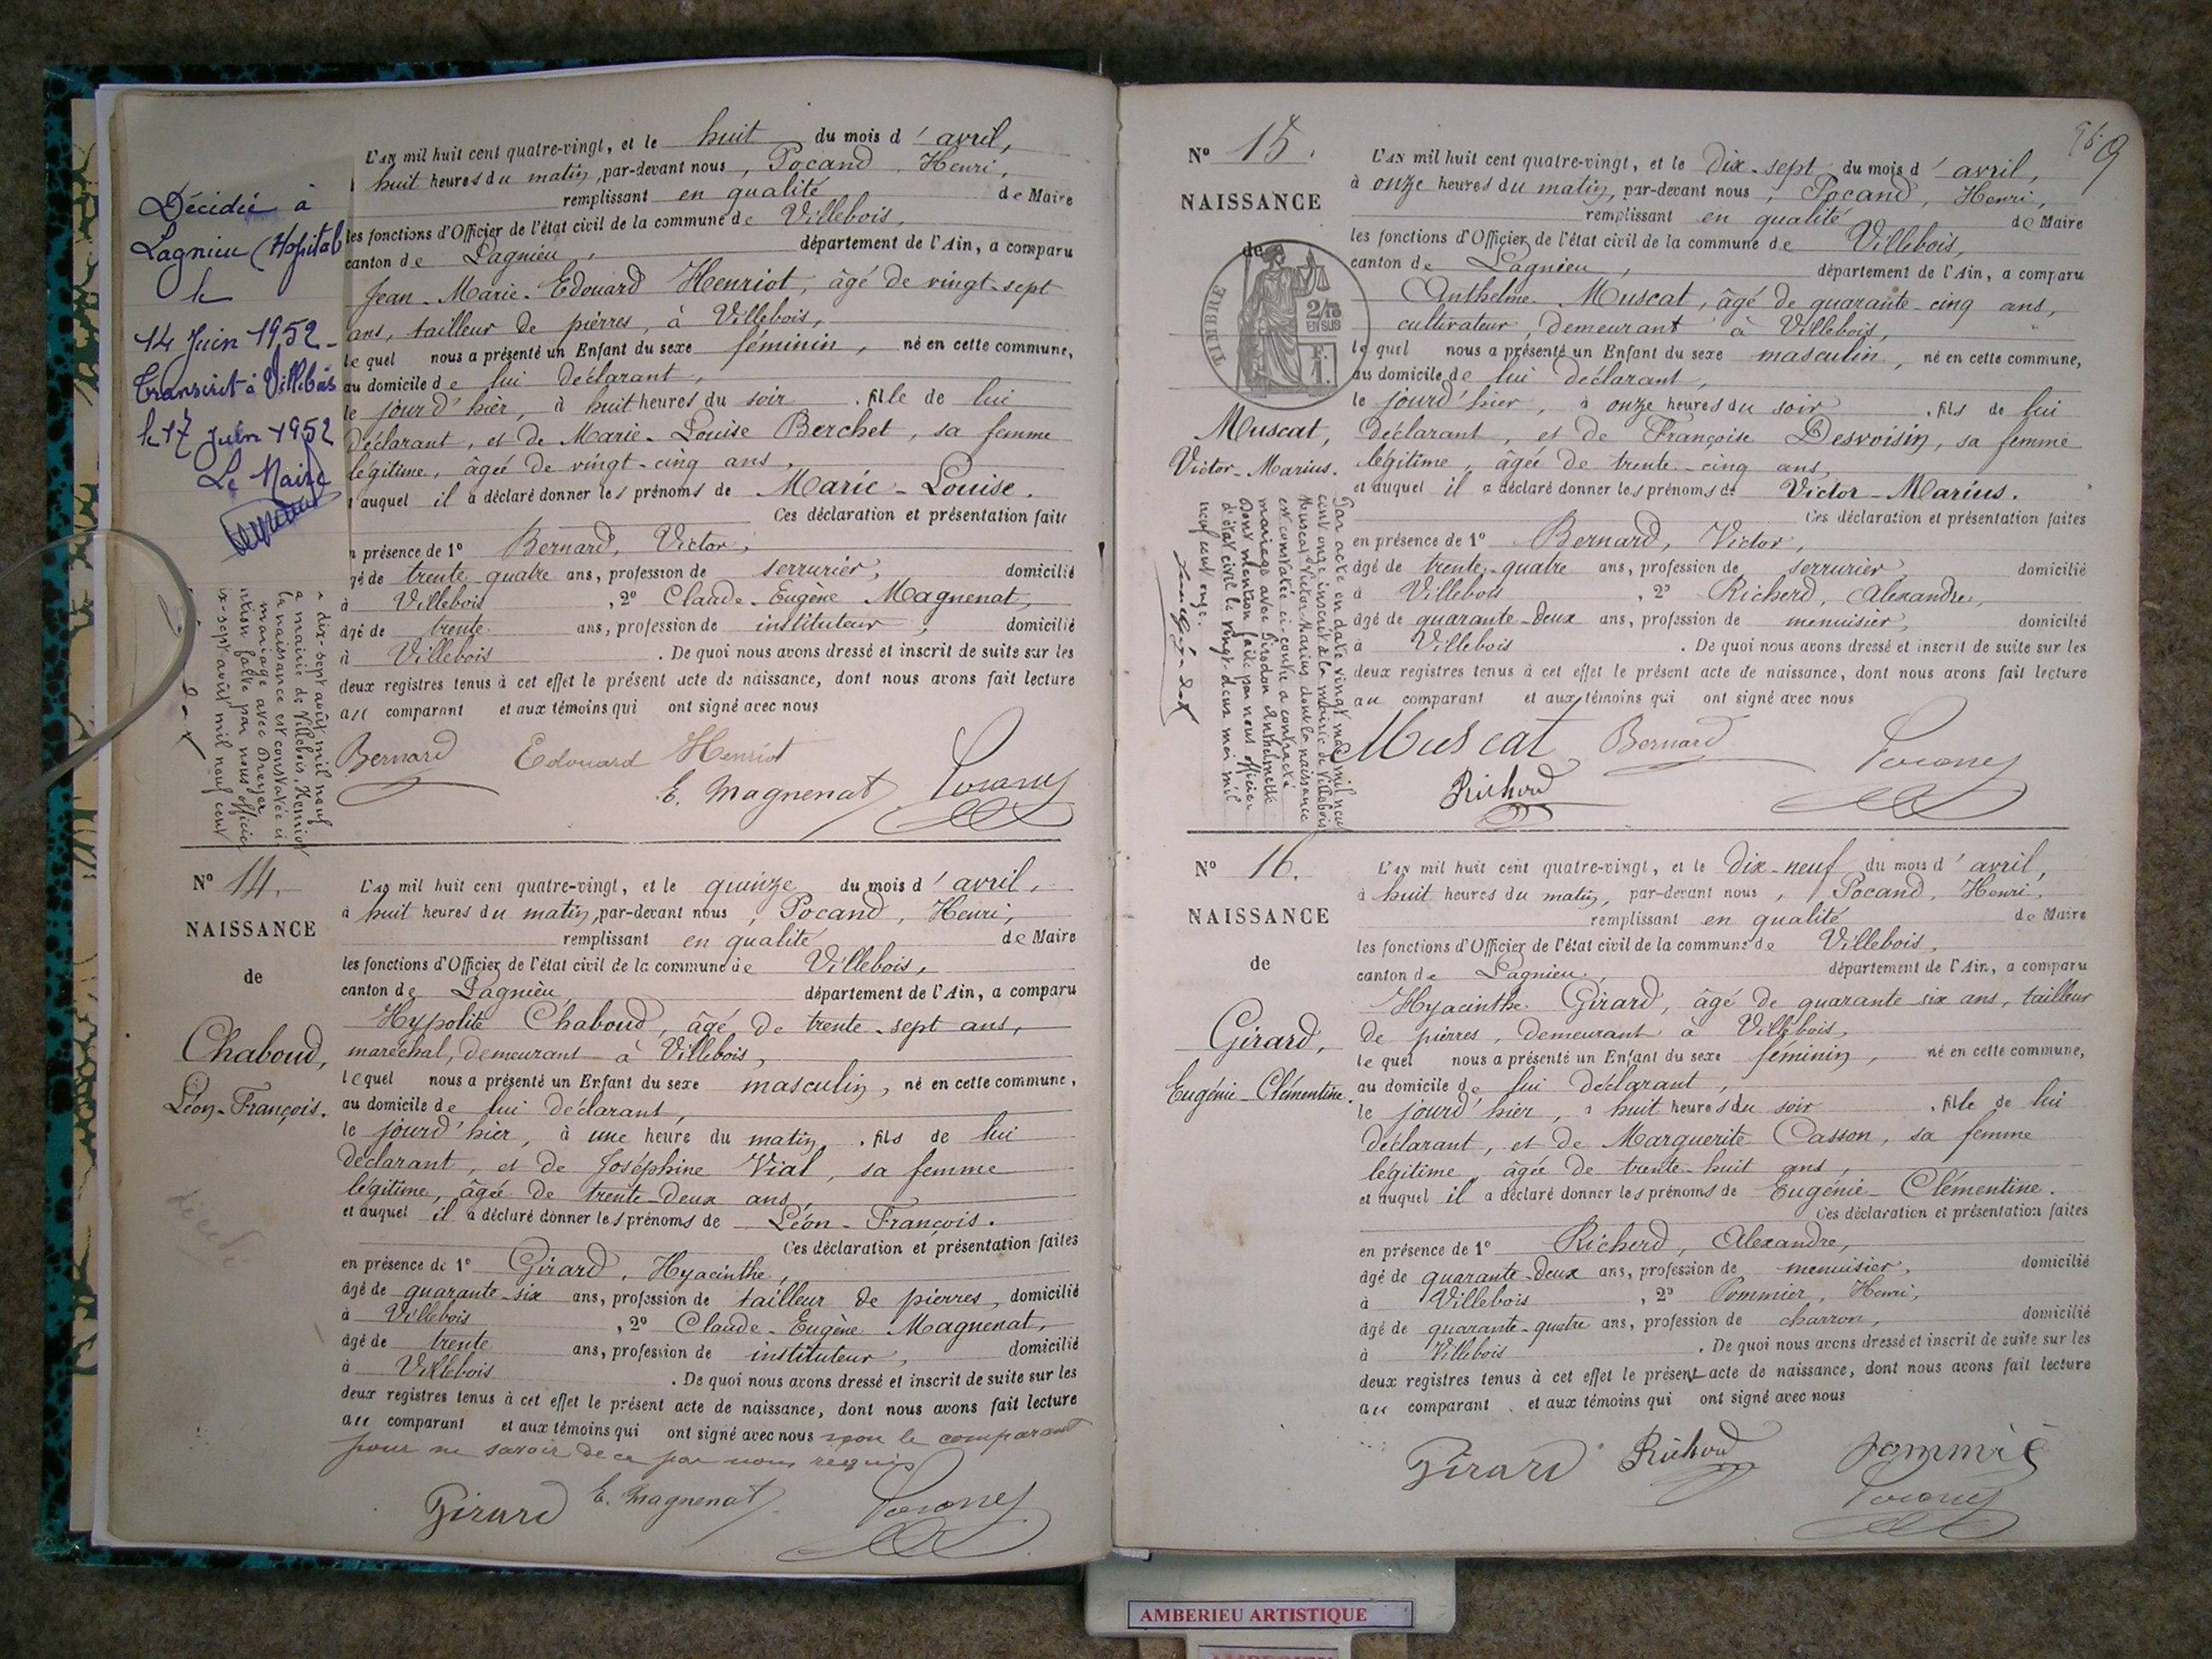 L'AN mil huit cent quatre-vingt, et le huit du mois d'avril,
huit heures du matin, par-devant nous, Pocand, Henri,
remplissant en qualité de Maire
les fonctions d'Officier de l'état civil de la commune de Villebois,
canton de Lagnieu, département de l'Ain, a comparu
Jean-Marie-Edouard Henriot, âgé de vingt-sept
ans, tailleur de pierres, à Villebois,
lequel nous a présenté un Enfant du sexe féminin, né en cette commune,
au domicile de lui déclarant,
le jourd'hier, à huit heures du soir, fille de lui
déclarant, et de Marie-Louise Berchet, sa femme
légitime, âgée de vingt-cinq ans,
auquel il a déclaré donner les prénoms de Marie-Louise.
Ces déclaration et présentation faite
présence de 1º Bernard, Victor,
gé de trente-quatre ans, profession de serrurier, domicilié
à Villebois, 2º Claude-Eugène Magnenat,
âgé de trente ans, profession de instituteur, domicilié
à Villebois. De quoi nous avons dressé et inscrit de suite sur les
deux registres tenus à cet effet le présent acte de naissance, dont nous avons fait lecture
au comparant et aux témoins qui ont signé avec nous
Bernard Edouard Henriot
E. Magnenat
Décidée à
Lagnieu (Hopital
le
14 Juin 1952-
transcrit à Villebois
le 17 Juin 1952
Le Maire
dix-sept août mil neuf
a mairie de Villebois, Henriot
la naissance est constatée ci
mariage avec Dreyer
ntion faite par nous officie
ix-sept août mil neuf cent
Nº 14.
NAISSANCE
de
Chaboud,
Léon-François.
L'AN mil huit cent quatre-vingt, et le quinze du mois d'avril,
à huit heures du matin, par-devant nous, Pocand, Henri,
remplissant en qualité de Maire
les fonctions d'Officier de l'état civil de la commune de Villebois,
canton de Lagnieu, département de l'Ain, a comparu
Hypolite Chaboud, âgé de trente-sept ans,
maréchal, demeurant à Villebois,
lequel nous a présenté un Enfant du sexe masculin, né en cette commune,
au domicile de lui déclarant,
le jourd'hier, à une heure du matin, fils de lui
déclarant, et de Joséphine Vial, sa femme
légitime, âgée de trente-deux ans,
et auquel il a déclaré donner les prénoms de Léon-François.
Ces déclaration et présentation faites
en présence de 1º Girard, Hyacinthe,
âgé de quarante-six ans, profession de tailleur de pierres, domicilié
à Villebois, 2º Claude-Eugène Magnenat,
âgé de trente ans, profession de instituteur, domicilié
à Villebois. De quoi nous avons dressé et inscrit de suite sur les
deux registres tenus à cet effet le présent acte de naissance, dont nous avons fait lecture
au comparant et aux témoins qui ont signé avec nous non le comparant
pour ne savoir de ce par nous requis
Girard E. Magnenat
décédé
9
Nº 15.
NAISSANCE
de
TIMBRE
2/10
EN SUS
F.
1.
Muscat,
Victor-Marius.
L'AN mil huit cent quatre-vingt, et le dix-sept du mois d'avril,
à onze heures du matin, par-devant nous, Pocand, Henri,
remplissant en qualité de Maire
les fonctions d'Officier de l'état civil de la commune de Villebois,
canton de Lagnieu, département de l'Ain, a comparu
Anthelme Muscat, âgé de quarante-cinq ans,
cultivateur, demeurant à Villebois,
lequel nous a présenté un Enfant du sexe masculin, né en cette commune,
au domicile de lui déclarant,
le jourd'hier, à onze heures du soir, fils de lui
déclarant, et de Françoise Desvoisin, sa femme
légitime, âgée de trente-cinq ans,
et auquel il a déclaré donner les prénoms de Victor-Marius.
Ces déclaration et présentation faites
en présence de 1º Bernard, Victor,
âgé de trente-quatre ans, profession de serrurier, domicilié
à Villebois, 2º Richerd, Alexandre,
âgé de quarante-deux ans, profession de menuisier, domicilié
à Villebois. De quoi nous avons dressé et inscrit de suite sur les
deux registres tenus à cet effet le présent acte de naissance, dont nous avons fait lecture
au comparant et aux témoins qui ont signé avec nous
Muscat Bernard
Richerd
Par acte en date vingt mai mil neuf
cent onze inscrit à la mairie de Villebois
Muscat Victor Marius dont la naissance
est constatée ci-contre a contracté
mariage avec Girodon Anthelmette
Dont mention faite par nous officier
d'état civil le vingt-deux mai mil
neuf cent onze.
Nº 16.
NAISSANCE
de
Girard,
Eugénie-Clémentine.
L'AN mil huit cent quatre-vingt, et le dix-neuf du mois d'avril,
à huit heures du matin, par-devant nous, Pocand, Henri,
remplissant en qualité de Maire
les fonctions d'Officier de l'état civil de la commune de Villebois,
canton de Lagnieu, département de l'Ain, a comparu
Hyacinthe Girard, âgé de quarante-six ans, tailleur
de pierres, demeurant à Villebois,
lequel nous a présenté un Enfant du sexe féminin, né en cette commune,
au domicile de lui déclarant,
le jourd'hier, à huit heures du soir, fille de lui
déclarant, et de Marguerite Casson, sa femme
légitime, âgée de trente-huit ans,
et auquel il a déclaré donner les prénoms de Eugénie-Clémentine.
Ces déclaration et présentation faites
en présence de 1º Richerd, Alexandre,
âgé de quarante-deux ans, profession de menuisier, domicilié
à Villebois, 2º Pommier, Henri,
âgé de quarante-quatre ans, profession de charron, domicilié
à Villebois. De quoi nous avons dressé et inscrit de suite sur les
deux registres tenus à cet effet le présent acte de naissance, dont nous avons fait lecture
au comparant et aux témoins qui ont signé avec nous
Girard Richerd Pommié
AMBERIEU ARTISTIQUE